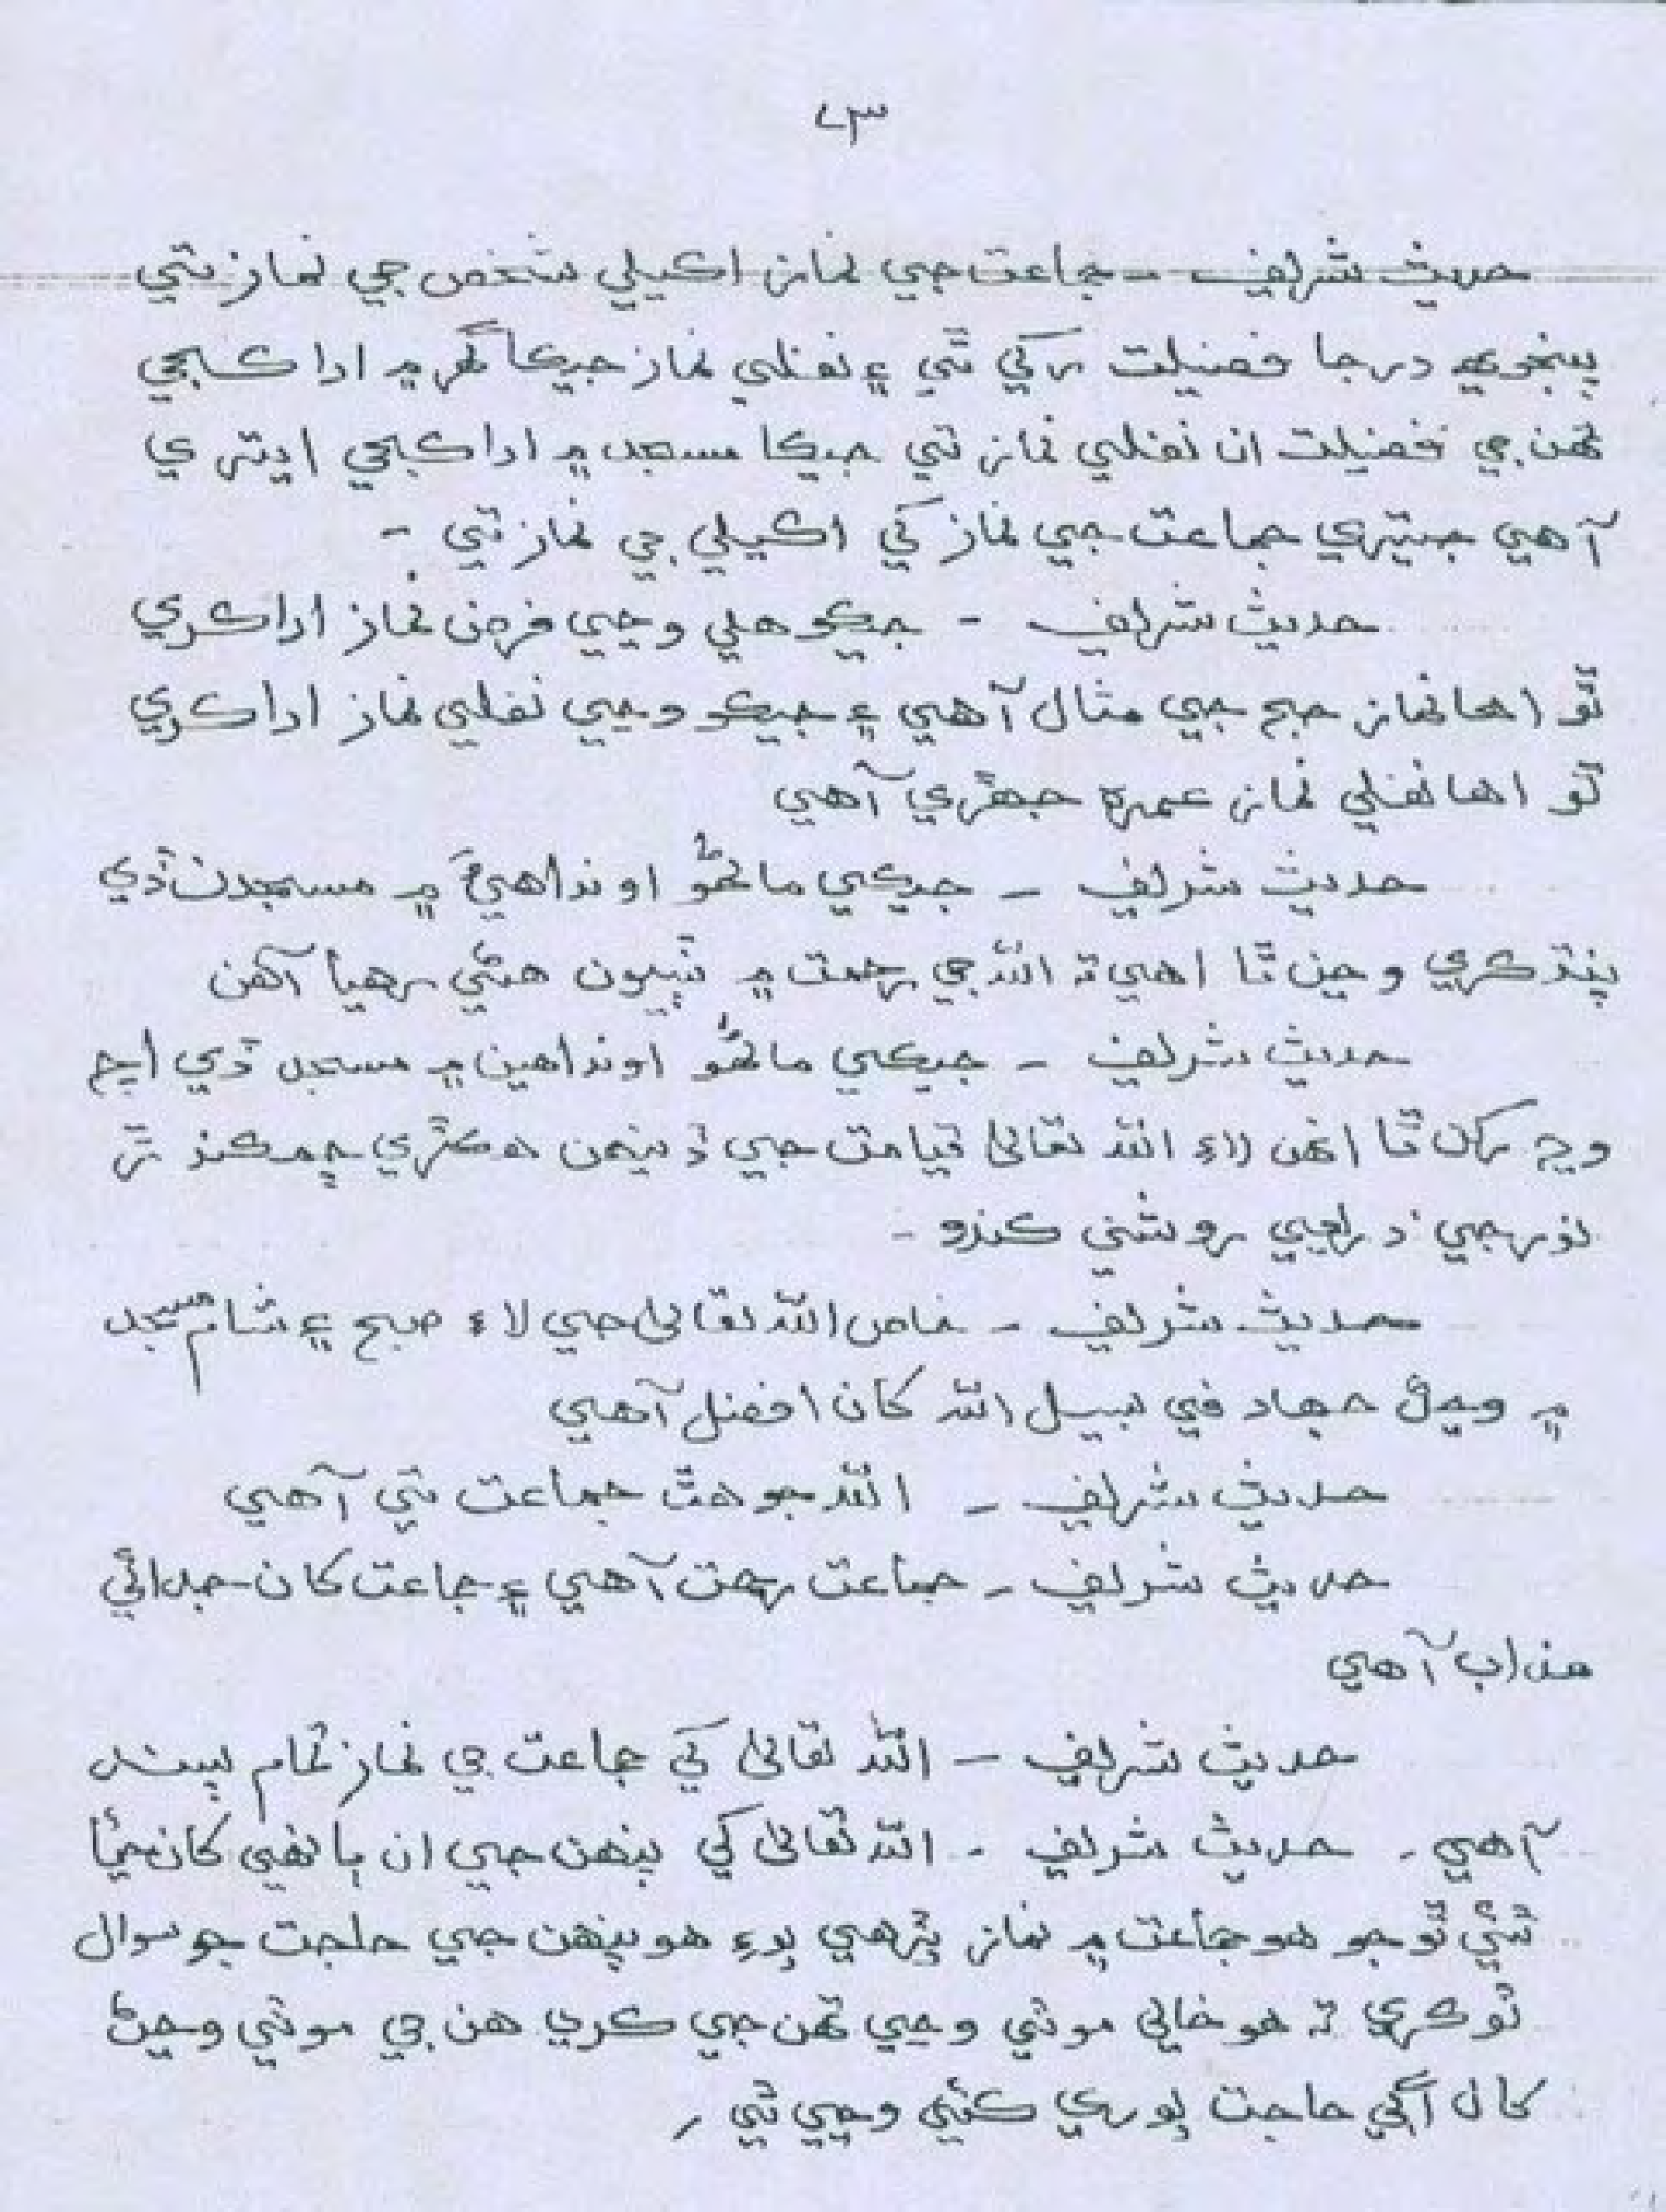 ۳
حديث شريف - جماعت جي نماز اڪيلي شخص جي نماز تي
پنجويهه درجا فضيلت رکي ٿي ۽ نفلي نماز جيڪا گهر ۾ ادا ڪجي
تهن جي فضيلت ان نفلي نماز تي جيڪا مسجد ۾ ادا ڪجي ايتري
آهي جيتري جماعت جي نماز کي اڪيلي جي نماز تي -
حديث شريف - جيڪو هلي وڃي فرض نماز ادا ڪري
ٿو اها نماز حج جي مثال آهي ۽ جيڪو وڃي نفلي نماز ادا ڪري
ٿو اها نفلي نماز عمره جهڙي آهي
حديث شريف - جيڪي ماڻهو اونداهيءَ ۾ مسجدن ڏي
پنڌ ڪري وڃن ٿا اهي ته الله جي رحمت ۾ ٽٻيون هڻي رهيا آهن
حديث شريف - جيڪي ماڻهو اونداهين ۾ مسجد ڏي اچ
وڃ رکن ٿا انهن لاءِ الله تعاليٰ قيامت جي ڏينهن هڪڙي چمڪندڙ
نور جي ذريعي روشني ڪندو -
حديث شريف - خاص الله تعاليٰ جي لاءِ صبح ۽ شام مسجد
۾ وڃڻ جهاد في سبيل الله کان افضل آهي
حديث شريف - الله جو هٿ جماعت تي آهي
حديث شريف - جماعت رحمت آهي ۽ جماعت کان جدائي
عذاب آهي
حديث شريف - الله تعاليٰ کي جماعت جي نماز تمام پسند
آهي - حديث شريف - الله تعاليٰ کي پنهن جي ان ٻانهي کان حيا
ٿئي ٿو جو هو جماعت ۾ نماز پڙهي پوءِ هو پنهن جي حاجت جو سوال
ٿو ڪري ته هو خالي موٽي وڃي تهن جي ڪري هن جي موٽي وڃڻ
کان اڳي حاجت پوري ڪئي وڃي ٿي